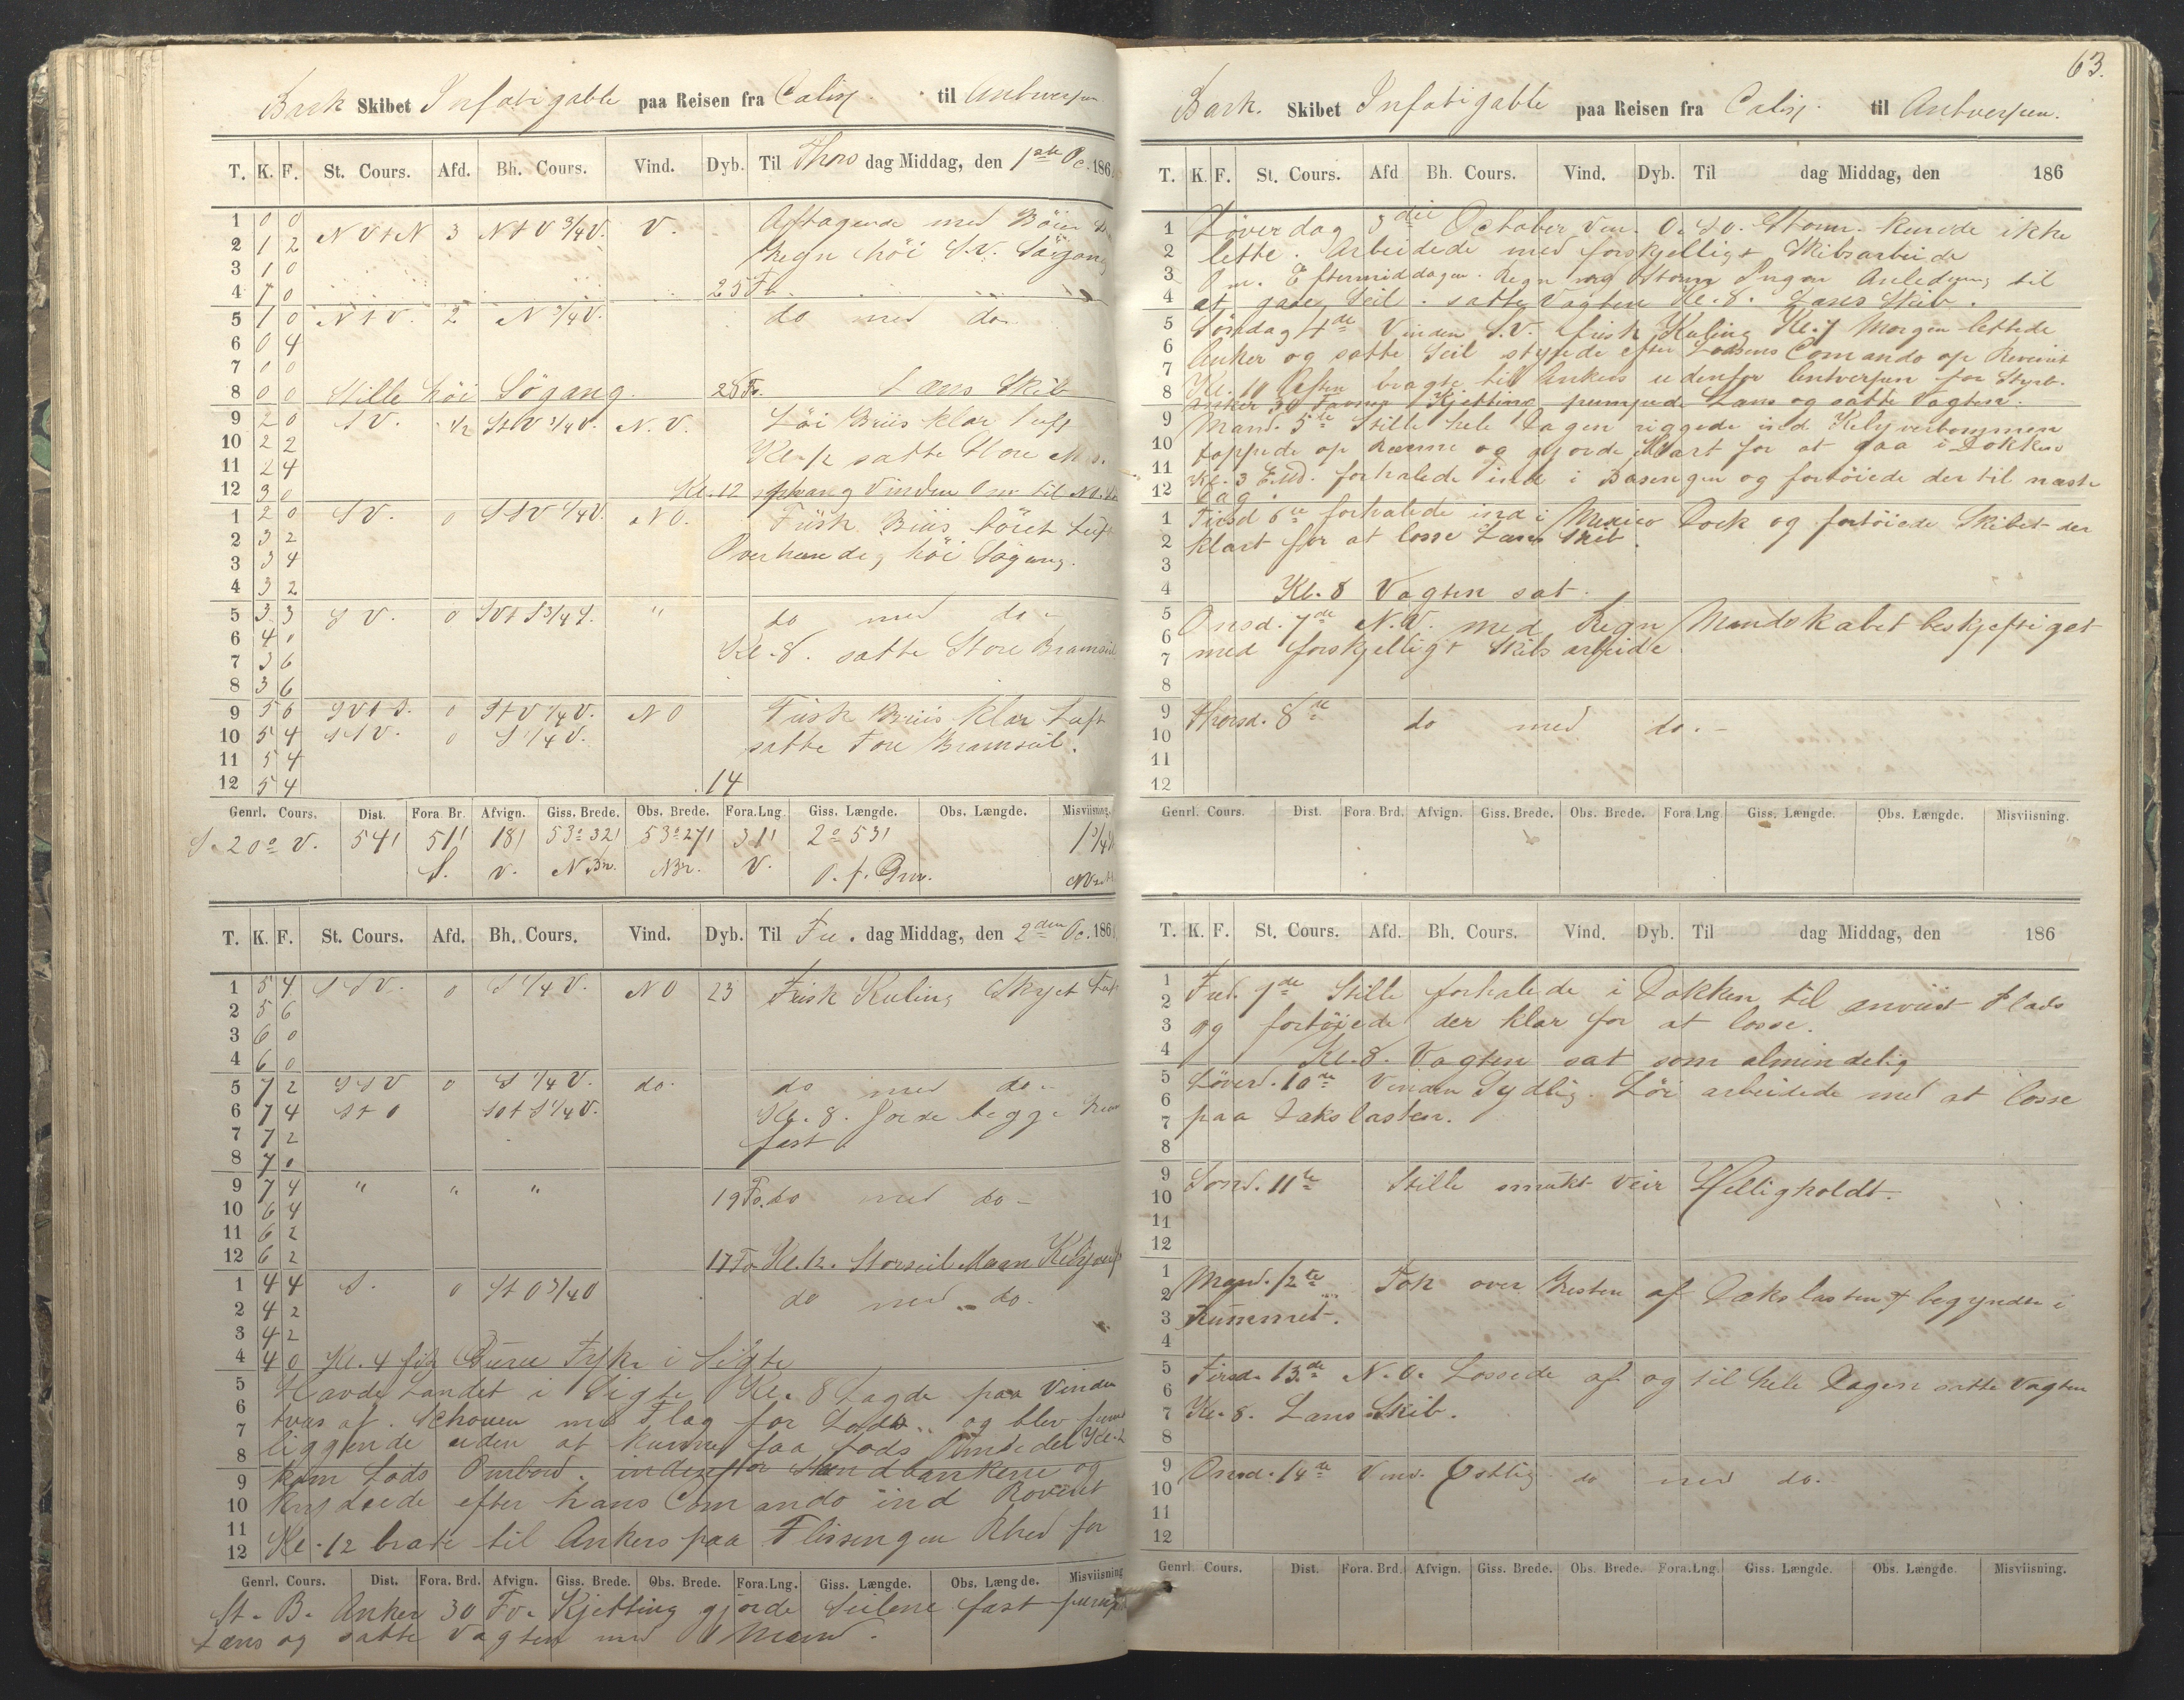 Bark Skibet Infatigable paa Reisen fra Calix til Antwerpen
T. K. F. St. Cours. Afd. Bh. Cours. Vind. Dyb. Til Thors dag Middag, den 1ste Oc. 186
1 0 0 NVtN 3 NtV 3/4 V. V. Aftagende med Böier
2 1 2 Regn höi S.V. Sögang
3 1 0
4 1 0 25 Fv.
5 1 0 NtV. 2 N 3/4 V. do med do
6 0 4
7 0 0
8 0 0 Stille höi Sögang. 28 Fv. Læns Skib
9 2 0 SV. 1/2 StV 3/4 V. N.V. Löi Briis klar Luft
10 2 2 Kl. 12 satte Store
11 2 4
12 3 0 Kl. 12 sprang Vinden Om til NO.
1 2 0 SV. 0 SSV 1/4 V. NO. Frisk Briis töret Luft
2 3 2 Overhaande, höi Sögang.
3 3 4
4 3 2
5 3 3 SV. 0 SVtS 3/4 S. " do med do
6 4 0 Kl. 8. satte Store Bramseil
7 3 6
8 3 6
9 5 6 SVtS. 0 StV 1/4 V. NO Frisk Briis klar Luft
10 5 4 SSV. 0 S 1/4 V. satte Fore Bramseil.
11 5 4
12 5 4 14
Genrl. Cours. Dist. Fora Br. Afvign. Giss. Brede. Obs. Brede. Fora.Lng. Giss. Længde. Obs. Længde. Misviisning.
S. 20° V. 54' 51' 18' 53° 32' 53° 27' 31' 2° 53' 1 3/4
S. V. N Br. N Br. V. O. f. Grw.
T. K. F. St. Cours. Afd. Bh. Cours. Vind. Dyb. Til Fre. dag Middag, den 2den Oc. 186
1 5 4 SSV. 0 S 1/4 V. NO 23 Frisk Kuling Skyet Luft
2 5 6
3 6 0
4 6 0
5 7 2 SSV 0 S 1/4 V. do. do med do
6 7 4 StO SOtS 1/4 V. Kl. 8. Gjorde begge
7 7 2 fast.
8 7 0
9 7 4 " " " 19 Fv. do med do
10 6 4
11 6 2
12 6 2 17 Fv. Kl. 12. Storseil Klyver
1 4 4 S. 0 StO 3/4 O do med do.
2 4 2
3 4 2
4 4 0 Kl. 4 fik Fyhr i Sigte
5 Havde Landet i Sigte Kl. 8 Lagde paa Vinden
6 tvers af. Schouen med Flag for Lods og blev
7 liggende uden at kunne faa Lods Kl. 2
8
9 kom Lods Ombord. indenfor Sandbankerne og
10 krydsede efter hans Comando ind Reveiret
11
12 Kl. 12 bragte til Ankers paa Flissengen Rhed for
Genrl. Cours. Dist. Fora. Brd. Afvign. Giss. Brede. Obs. Brede. Fora.Lng. Giss. Længde. Obs. Længde. Misviisning
St. B. Anker 30 Fv. Kjetting gjorde Seilene fast
Læns og satte Vagten med 1 Mand.
63.
Bark. Skibet Infatigable paa Reisen fra Calix til Antverpen.
T. K. F. St. Cours. Afd Bh. Cours. Vind. Dyb. Til dag Middag, den 186
1 Löverdag 3die October Vin. O. S.V. Storm. kunde ikke
2 lette. Arbeidede med forskjelligt Skibsarbeide
3 Om Eftermiddagen. Regn og Storm Ingen Anledning til
4 at Seil. satte Vagten Kl. 8. Læns Skib.
5 Söndag 4de Vinden S.V. frisk Kuling Kl. 7 Morgen lettede
6 Anker og satte Seil styrede efter Lodsens Comando op Reveiret
7
8 Kl. 11 Aften bragte til Ankers udenfor Antverpen for Styrb.
Anker 30 Favner Kjetting pumpede Læns og satte Vagten.
9 Mand. 5te Stille hele Dagen riggede ind Klyverbommen
10 toppede op Raaerne og gjorde Klart for at gaa i Dokken
11 Kl. 3 E.Md. forhalede ind i Basengen og fortöiede der til næste
12 Dag.
1 Tirsd 6te forhalede ind i Mexico Dock og fortöiede Skibet der
2 klart for at losse Læns Skib.
3
4 Kl. 8 Vagten sat.
5 Onsd. 7de N.V. med Regn Mandskabet beskjeftiget
6
7 med forskjelligt Skibs arbeide
8
9 Thorsd. 8de do med do.
10
11
12
Genrl. Cours. Dist. Fora. Brd. Afvign. Giss. Brede. Obs. Brede. Fora.Lng. Giss. Længde. Obs. Længde. Misviisning.
T. K. F. St. Cours. Afd. Bh. Cours. Vind. Dyb. Til dag Middag, den 186
1
2 Fred. 9de Stille forhalede i Dokken til anviist Plads
3 og fortöiede der klar for at losse.
4 Kl. 8. Vagten sat som almindelig
5 Löverd. 10de Vinden Sydlig. Löi arbeidede med at losse
6
7 paa Dækslasten.
8
9 Sönd. 11te Stille smukt Veir Helligholdt.
10
11
12
1
2 Mand. 12te Tok over Resten af Dækslasten & begyndte i
3 Rummet.
4
5 Tirsd. 13de N.O. Lossede af og til hele Dagen satte Vagten
6
7 Kl. 8. Læns Skib.
8
9 Onsd. 14de Vind. Östlig do med do.
10
11
12
Genrl. Cours. Dist. Fora. Brd. Afvign. Giss. Brede. Obs. Brede. Fora.Lng. Giss. Længde. Obs. Længde. Misviisning.